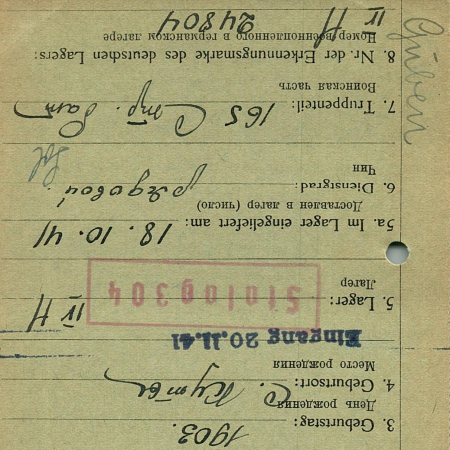 1903.
3. Geburtstag:
День рождения
4. Geburtsort: с.
Место рождения
Eingang 20.11.41
5. Lager: IV H
Лагер
Stalag 304
5a. Im Lager eingeliefert am: 18.10.41
Доставлен в лагер (число)
6. Dienstgrad: рядовой
Чин
Sol
7. Truppenteil: 165 Стр. Бат
Воинская часть
8. Nr. der Erkennungsmarke des deutschen Lagers:
Номер военнопленного в германском лагере
24804
IV H
Guben